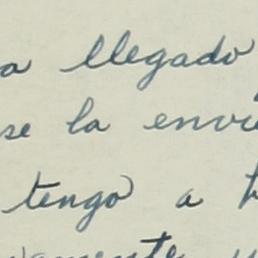 a llegado
se la envi
tengo a